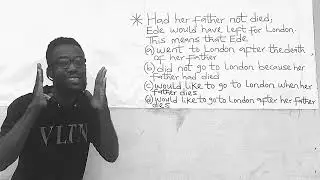 * Had her father not died,
Ede would have left for London.
This means that Ede
(a) went to London after the death
of her father
(b) did not go to London because her
father had died
(c) would like to go to London when her
father dies
(d) would like to go to London after her father
dies
VLTN